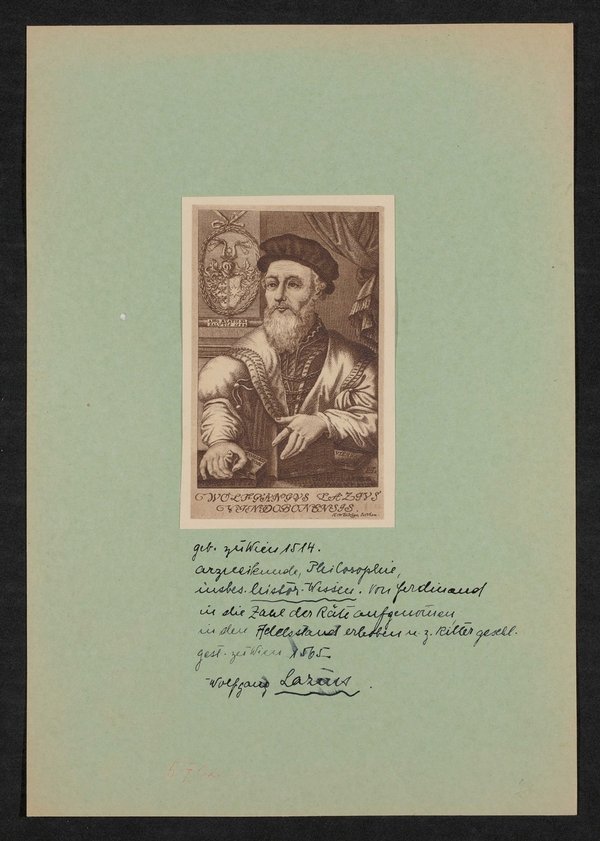 WOLFGANGVS LAZIVS
VINDOBONENSIS.
geb. zu Wien 1514.
arzneikunde, Philosophie,
insbes. histor. Wissen. Von Ferdinand
in die Zahl der Räte aufgenomen
in den Adelsstand erhoben u. z. Ritter geschl.
gest. zu Wien 1565
Wolfgang Lazius.